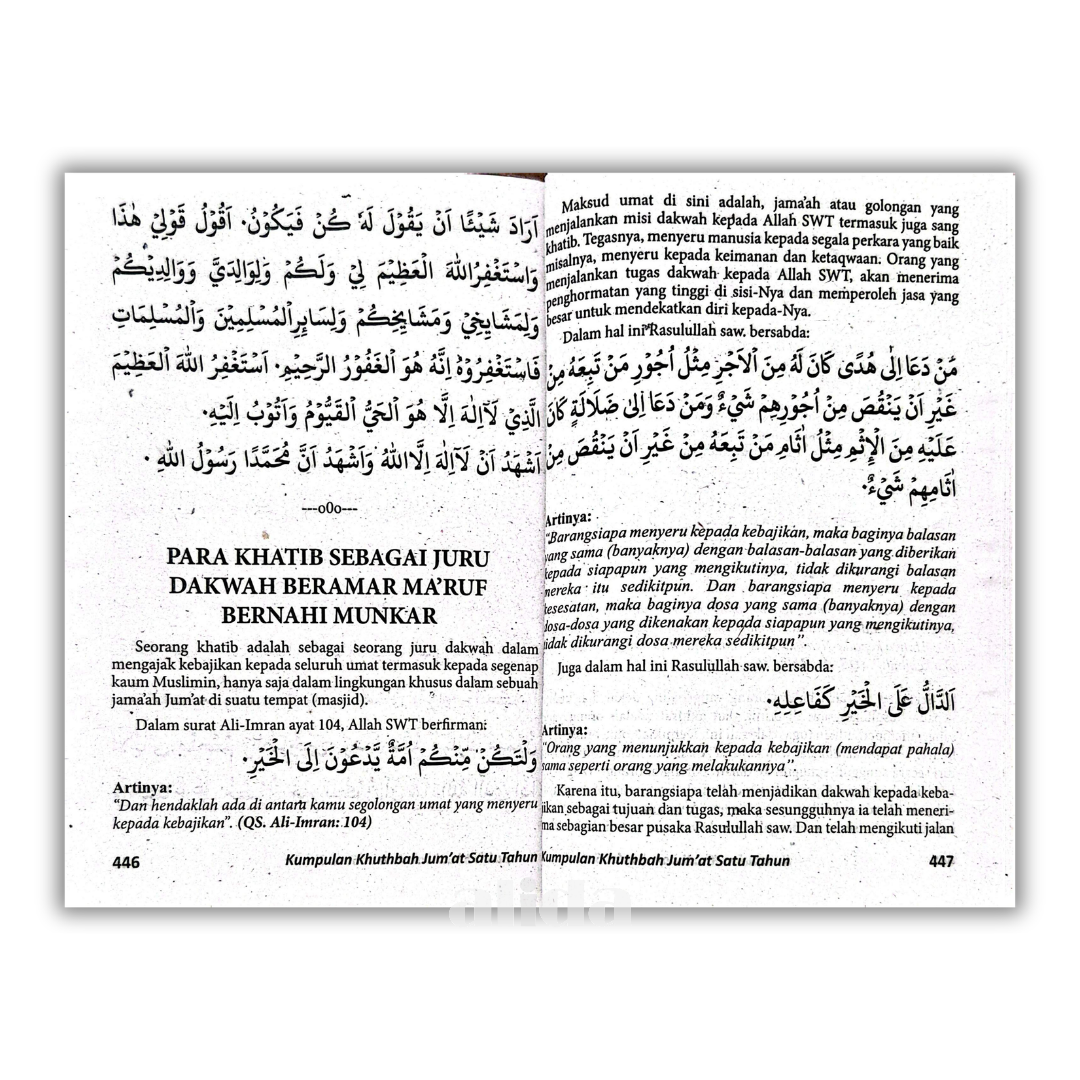 اَرَادَ شَيْئًا اَنْ يَقُوْلَ لَهٗ كُنْ فَيَكُوْنُ. اَقُوْلُ قَوْلِيْ هٰذَا
وَاسْتَغْفِرُاللهَ الْعَظِيْمَ لِيْ وَلَكُمْ وَلِوَالِدَيَّ وَوَالِدِيْكُمْ
وَلِمَشَايِخِيْ وَمَشَايِخِكُمْ وَلِسَايِرِالْمُسْلِمِيْنَ وَالْمُسْلِمَاتِ
فَاسْتَغْفِرُوْهُ اِنَّهُ هُوَ الْغَفُوْرُ الرَّحِيْمِ. اَسْتَغْفِرُ اللهَ الْعَظِيْمَ
الَّذِيْ لَآاِلٰهَ اِلَّا هُوَ الْحَيُّ الْقَيُّوْمُ وَاَتُوْبُ اِلَيْهِ.
اَشْهَدُ اَنْ لَآاِلٰهَ اِلَّااللهُ وَاَشْهَدُ اَنَّ مُحَمَّدًا رَسُوْلُ اللهِ .
---o0o---
PARA KHATIB SEBAGAI JURU
DAKWAH BERAMAR MA'RUF
BERNAHI MUNKAR
Seorang khatib adalah sebagai seorang juru dakwah dalam
mengajak kebajikan kepada seluruh umat termasuk kepada segenap
kaum Muslimin, hanya saja dalam lingkungan khusus dalam sebuah
jama'ah Jum'at di suatu tempat (masjid).
Dalam surat Ali-Imran ayat 104, Allah SWT berfirman:
وَلْتَكُنْ مِّنْكُمْ اُمَّةٌ يَّدْعُوْنَ اِلَى الْخَيْرِ.
Artinya:
"Dan hendaklah ada di antara kamu segolongan umat yang menyeru
kepada kebajikan". (QS. Ali-Imran: 104)
446 Kumpulan Khuthbah Jum'at Satu Tahun
Maksud umat di sini adalah, jama'ah atau golongan yang
menjalankan misi dakwah kepada Allah SWT termasuk juga sang
khatib. Tegasnya, menyeru manusia kepada segala perkara yang baik
misalnya, menyeru kepada keimanan dan ketaqwaan. Orang yang
menjalankan tugas dakwah kepada Allah SWT, akan menerima
penghormatan yang tinggi di sisi-Nya dan memperoleh jasa yang
besar untuk mendekatkan diri kepada-Nya.
Dalam hal ini Rasulullah saw. bersabda:
مَنْ دَعَا اِلٰى هُدًى كَانَ لَهُ مِنَ الْاَجْرِ مِثْلُ اُجُوْرِ مَنْ تَبِعَهُ مِنْ
غَيْرِ اَنْ يَنْقُصَ مِنْ اُجُوْرِهِمْ شَيْءٌ وَمَنْ دَعَا اِلٰى ضَلَالَةٍ كَانَ
عَلَيْهِ مِنَ الْاِثْمِ مِثْلُ اٰثَامِ مَنْ تَبِعَهُ مِنْ غَيْرِ اَنْ يَنْقُصَ مِنْ
اٰثَامِهِمْ شَيْءٌ.
Artinya:
"Barangsiapa menyeru kepada kebajikan, maka baginya balasan
yang sama (banyaknya) dengan balasan-balasan yang diberikan
kepada siapapun yang mengikutinya, tidak dikurangi balasan
mereka itu sedikitpun. Dan barangsiapa menyeru kepada
kesesatan, maka baginya dosa yang sama (banyaknya) dengan
dosa-dosa yang dikenakan kepada siapapun yang mengikutinya,
tidak dikurangi dosa mereka sedikitpun".
Juga dalam hal ini Rasulullah saw. bersabda:
اَلدَّالُّ عَلَى الْخَيْرِ كَفَاعِلِهِ.
Artinya:
"Orang yang menunjukkan kepada kebajikan (mendapat pahala)
sama seperti orang yang melakukannya".
Karena itu, barangsiapa telah menjadikan dakwah kepada keba-
jikan sebagai tujuan dan tugas, maka sesungguhnya ia telah meneri-
ma sebagian besar pusaka Rasulullah saw. Dan telah mengikuti jalan
Kumpulan Khuthbah Jum'at Satu Tahun 447
alida